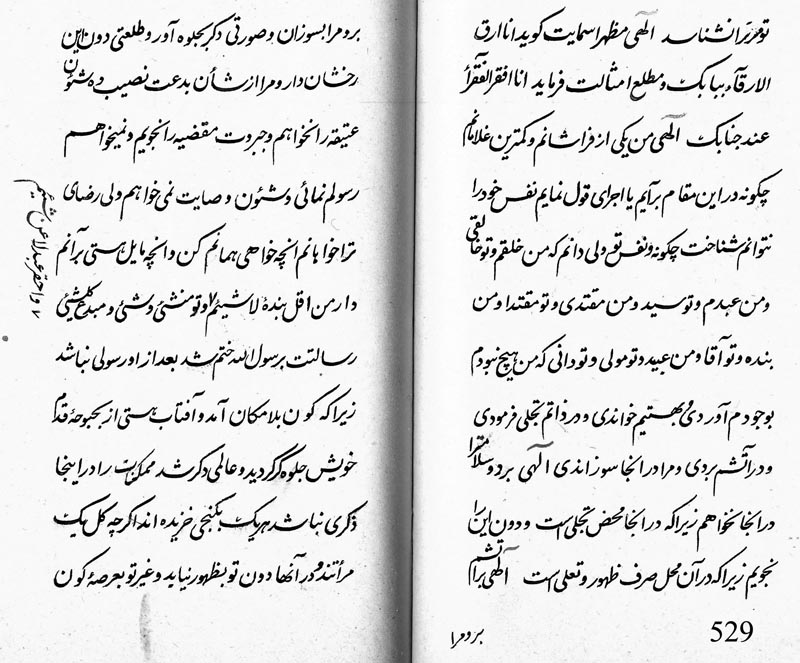 تو مرا نشناسد الهی مظهر اسمایت گوید انا ارق
الارقآء ببابک و مطلع امثالت فرماید انا افقر الفقرآء
عند جنابک الهی من یکی از فراشانم و کمترین غلامانم
چگونه در این مقام برآیم یا اجرای قول نمایم نفس خود را
نتوانم شناخت چگونه و نفس تو ولی دانم که من خلقم و تو خالقی
و من عبدم و تو سید و من مقتدی و تو مقتدا و من
بنده و تو آقا و من عبید و تو مولی و تو دانی که من هیچ نبودم
بوجودم آوردی و بهشتیم خواندی و در ذاتم تجلی فرمودی
و در آتشم بردی و مرا در آنجا سوزاندی الهی برد و سلامترا
در آنجا نخواهم زیرا که در آنجا محض تجلی است و دون این را
نجویم زیرا که در آن محل صرف ظهور و تعلی است الهی بر آتشم
برو مرا
529
برو مرا بسوزان و صورتی دگر بجلوه آور و طلعتی دون این
رخشان دار و مرا از شأن بدعت نصیب ده شئون
عتیقه را نخواهم و جبروت مقضیه را نجویم و نمیخواهم
رسولم نمائی و شئون وصایت نمی خواهم ولی رضای
ترا خواهانم آنچه خواهی همانم کن و آنچه مایل هستی بر آنم
دار من اقل بندهٔ لاشیئم ۷ و تو منشئ و شئ و مبدع کلشیئی
۷ و احقر عبد لا عن شیئم
رسالتت برسول الله ختم شد بعد از او رسولی نباشد
زیرا که کون بلا مکان آمد و آفتاب هستی از بحبوحهٔ قدم
خویش جلوه گر گردید و عالمی دگر شد ممکنات را در اینجا
ذکری نباشد هر یک بکنجی خزیده اند اگر چه کل یک
مرأتند و در آنها دون تو بظهور نیاید و غیر تو بعرصهٔ کون